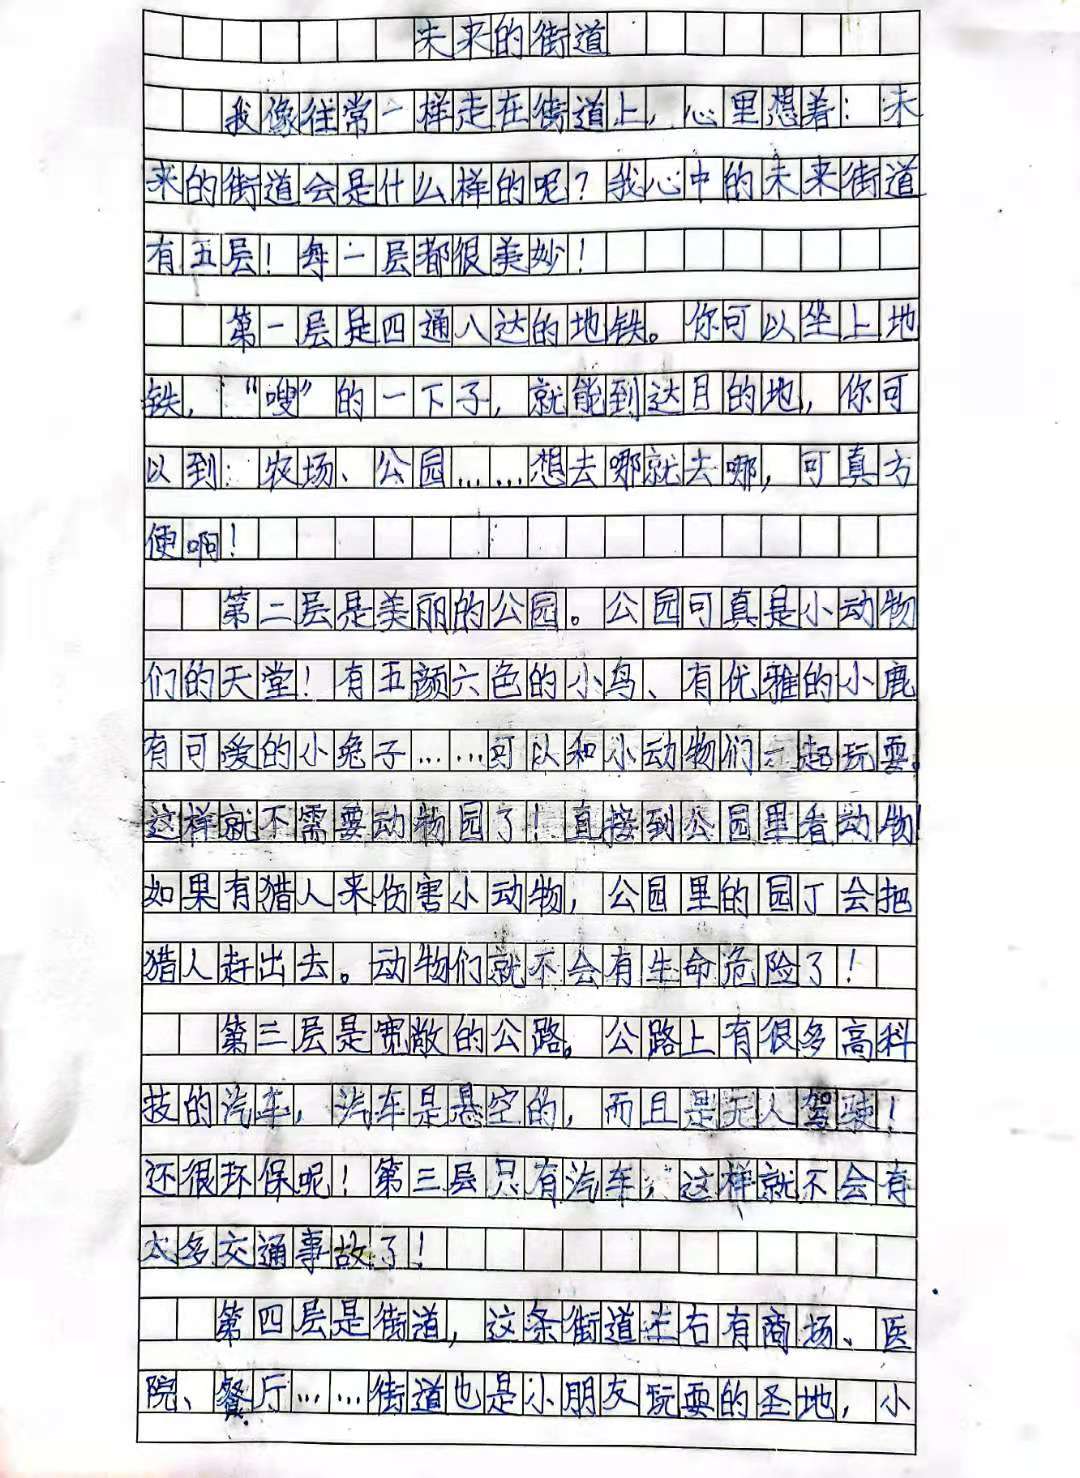 未来的街道
我像往常一样走在街道上，心里想着：未
来的街道会是什么样的呢？我心中的未来街道
有五层！每一层都很美妙！
第一层是四通八达的地铁。你可以坐上地
铁，“嗖”的一下子，就能到达目的地，你可
以到：农场、公园……想去哪就去哪，可真方
便啊！
第二层是美丽的公园。公园可真是小动物
们的天堂！有五颜六色的小鸟、有优雅的小鹿
有可爱的小兔子……可以和小动物们一起玩耍。
这样就不需要动物园了！直接到公园里看动物！
如果有猎人来伤害小动物，公园里的园丁会把
猎人赶出去。动物们就不会有生命危险了！
第三层是宽敞的公路。公路上有很多高科
技的汽车，汽车是悬空的，而且是无人驾驶！
还很环保呢！第三层只有汽车，这样就不会有
太多交通事故了！
第四层是街道，这条街道左右有商场、医
院、餐厅……街道也是小朋友玩耍的圣地，小